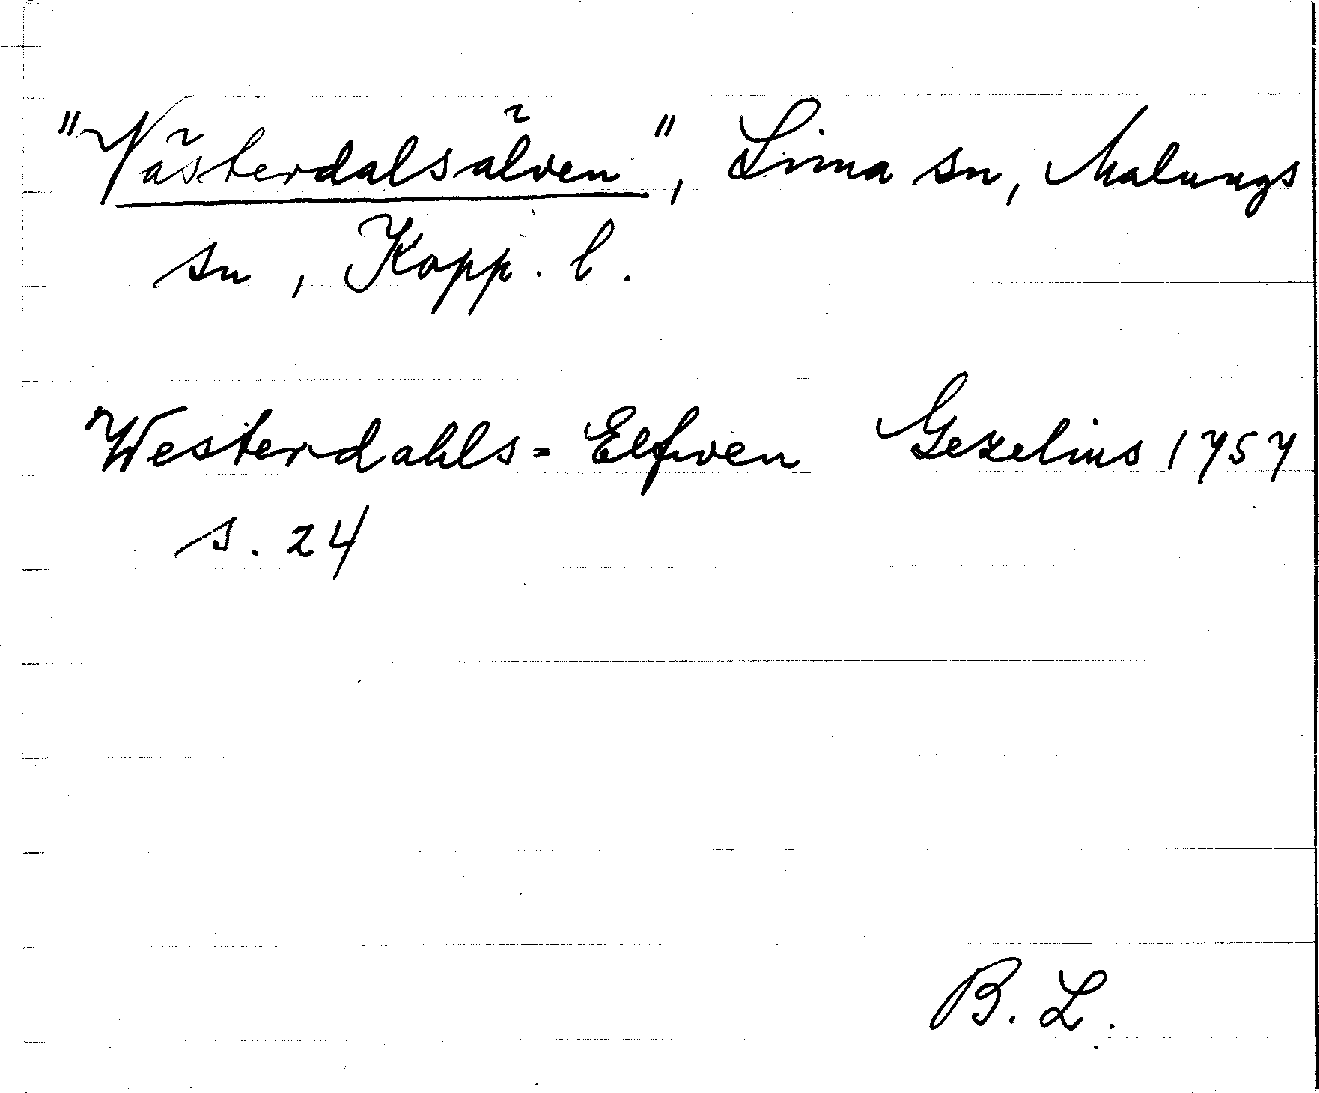 "Västerdalsälven", Lima sn, Malungs
sn, Kopp. l.
Westerdahls=Elfven Gezelius 1757
s. 24
B. L.